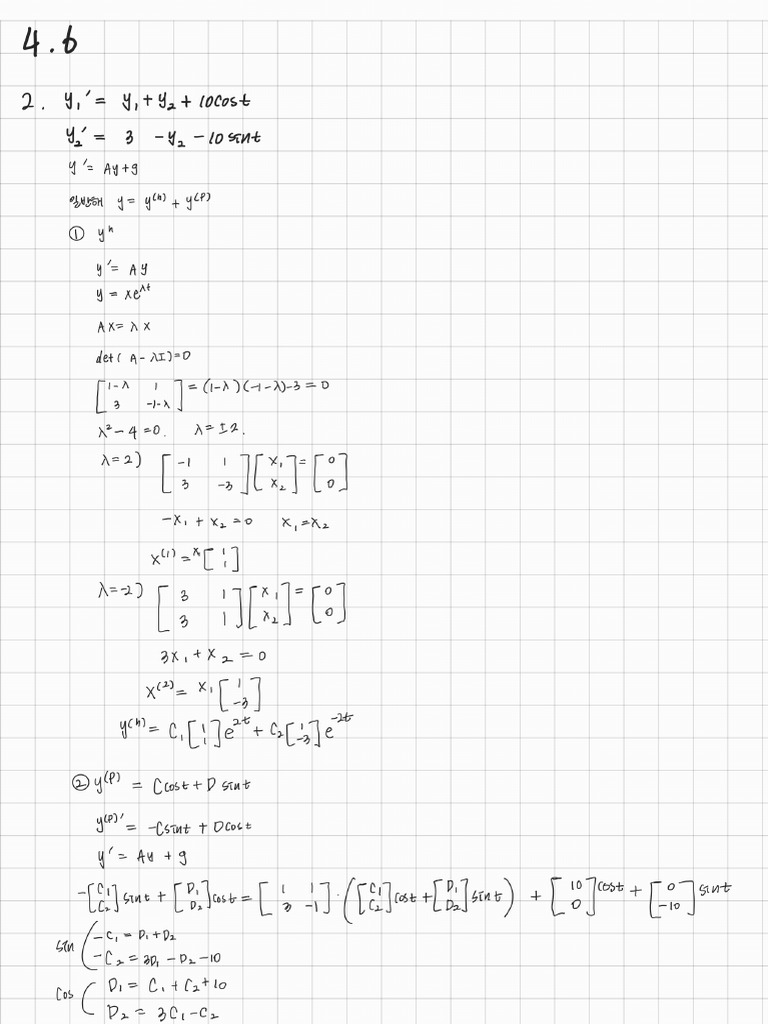 4.6
2. y₁' = y₁ + y₂ + 10cost
y₂' = 3 - y₂ - 10 sint
y' = Ay + g
일반해 y = y⁽ʰ⁾ + y⁽ᵖ⁾
① yʰ
y' = Ay
y = xe^λt
Ax = λx
det(A - λI) = 0
[1-λ 1; 3 -1-λ] = (1-λ)(-1-λ)-3 = 0
λ² - 4 = 0. λ = ±2.
λ=2) [-1 1; 3 -3][x₁; x₂] = [0; 0]
-x₁ + x₂ = 0 x₁ = x₂
x⁽¹⁾ = x₁[1; 1]
λ=-2) [3 1; 3 1][x₁; x₂] = [0; 0]
3x₁ + x₂ = 0
x⁽²⁾ = x₁[1; -3]
y⁽ʰ⁾ = C₁[1; 1]e^2t + C₂[1; -3]e^-2t
② y⁽ᵖ⁾ = Ccost + D sint
y⁽ᵖ⁾' = -Csint + Dcost
y' = Ay + g
-[C₁; C₂] sint + [D₁; D₂] cost = [1 1; 3 -1]·([C₁; C₂] cost + [D₁; D₂] sint) + [10; 0] cost + [0; -10] sint
sin ( -C₁ = D₁ + D₂
-C₂ = 3D₁ - D₂ - 10
cos ( D₁ = C₁ + C₂ + 10
D₂ = 3C₁ - C₂